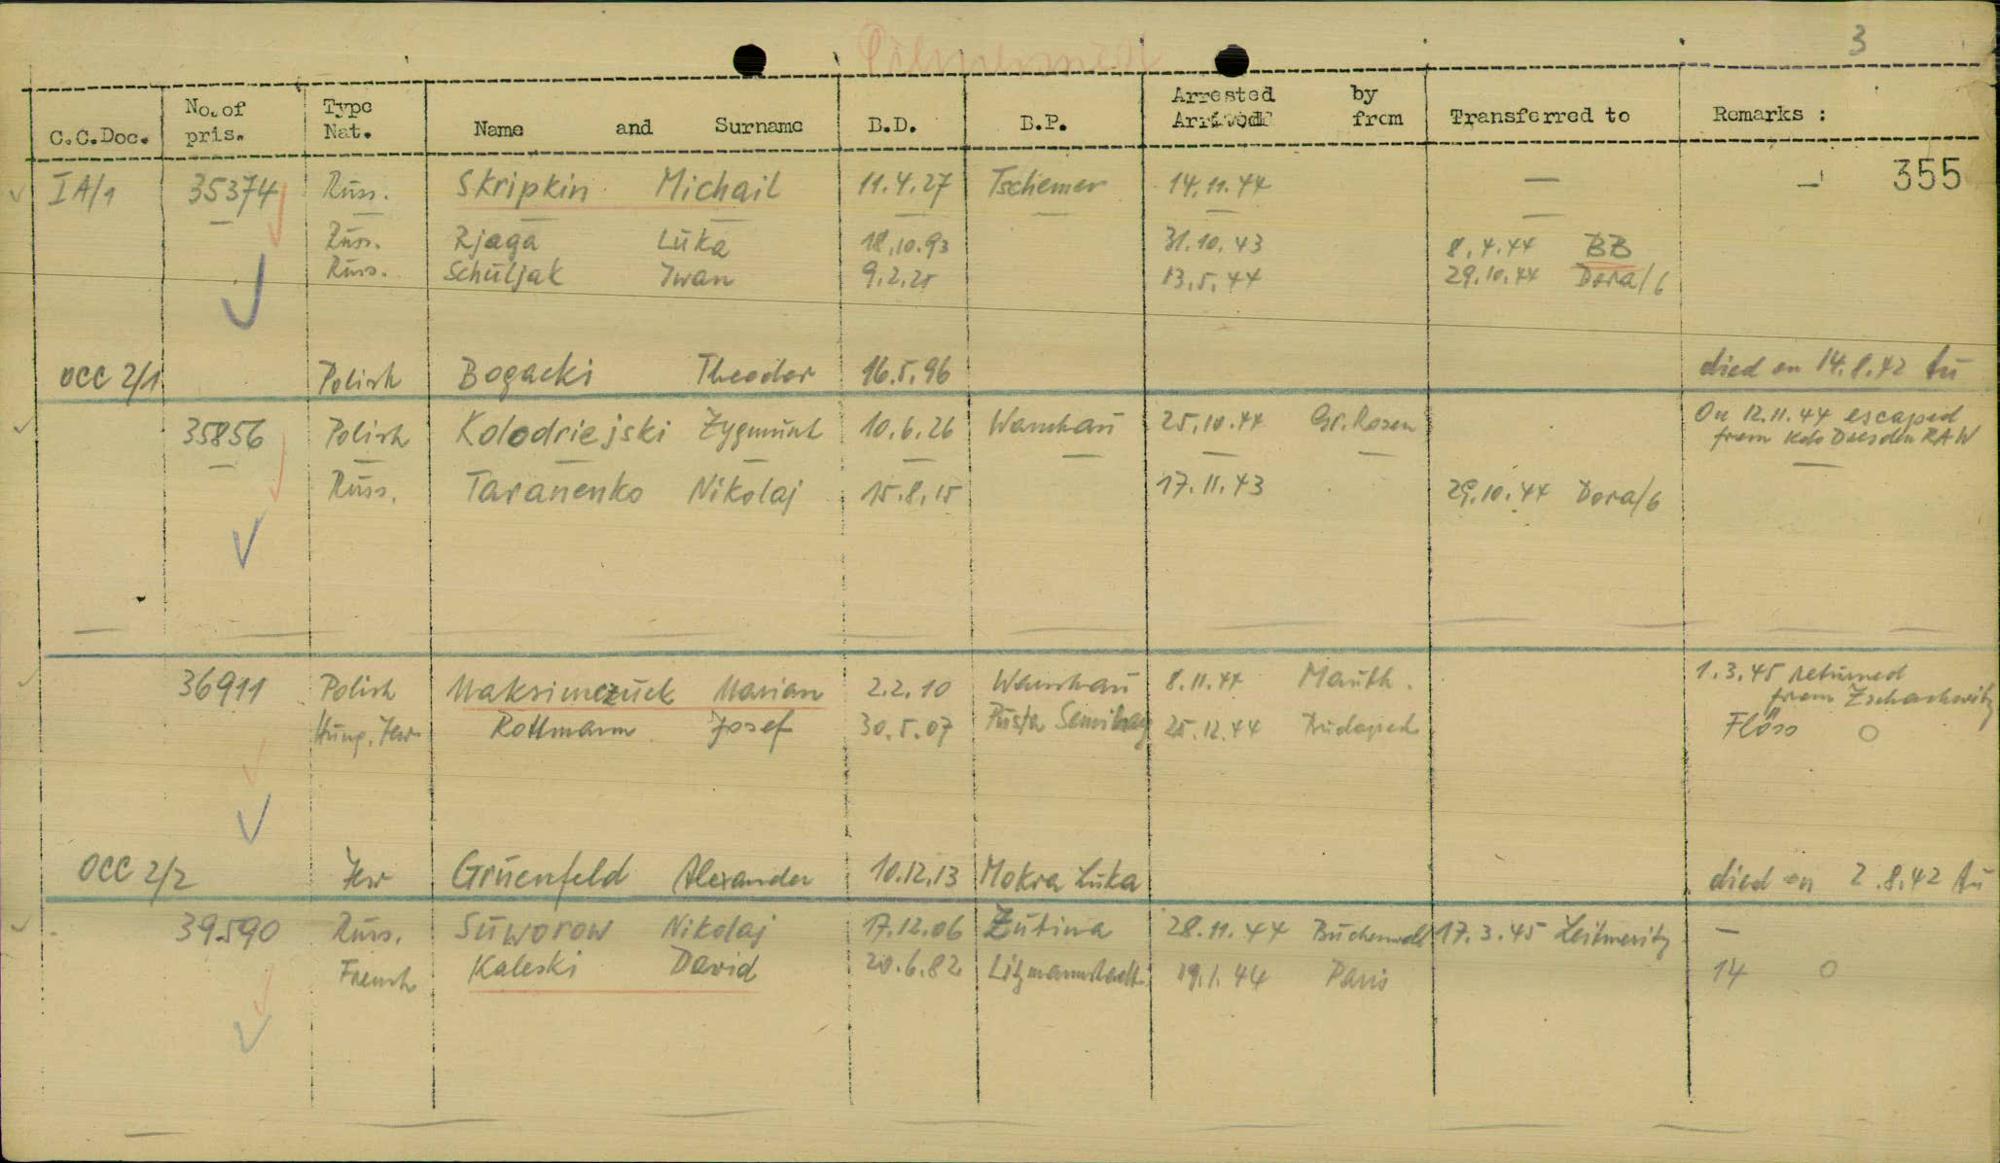 3
C.C.Doc. No. of pris. Type Nat. Name and Surname B.D. B.P. Arrested by Arrived from Transferred to Remarks :
355
IA/1 35374 Russ. Skripkin Michail 11.4.27 Tschemer 14.11.44 — —
Russ. Rjaga Luka 18.10.93 31.10.43 8.4.44 BB
Russ. Schuljak Iwan 9.2.25 13.5.44 29.10.44 Dora/6
OCC 2/1 Polish Bogacki Theodor 16.5.96 died on 14.8.42 Au
35856 Polish Kolodriejski Zygmunt 10.6.26 Warschau 25.10.44 Gr. Rosen On 12.11.44 escaped
from Kdo Dresden RAW
Russ. Taranenko Nikolaj 15.8.15 17.11.43 29.10.44 Dora/6
36911 Polish Maksimczuck Marian 2.2.10 Warschau 8.11.44 Mauth. 1.3.45 returned
from Zschachwitz
Hung. Jew Rottmann Josef 30.5.07 Pusta 25.12.44 Budapest Flöss O
OCC 2/2 Jew Gruenfeld Alexander 10.12.13 Mokra Luka died on 2.8.42 Au
39590 Russ. Suworow Nikolaj 17.12.06 Zutina 28.11.44 Buchenwald 17.3.45 Leitmeritz —
French Kaleski David 20.6.82 Litzmannstadt 19.1.44 Paris 14 O